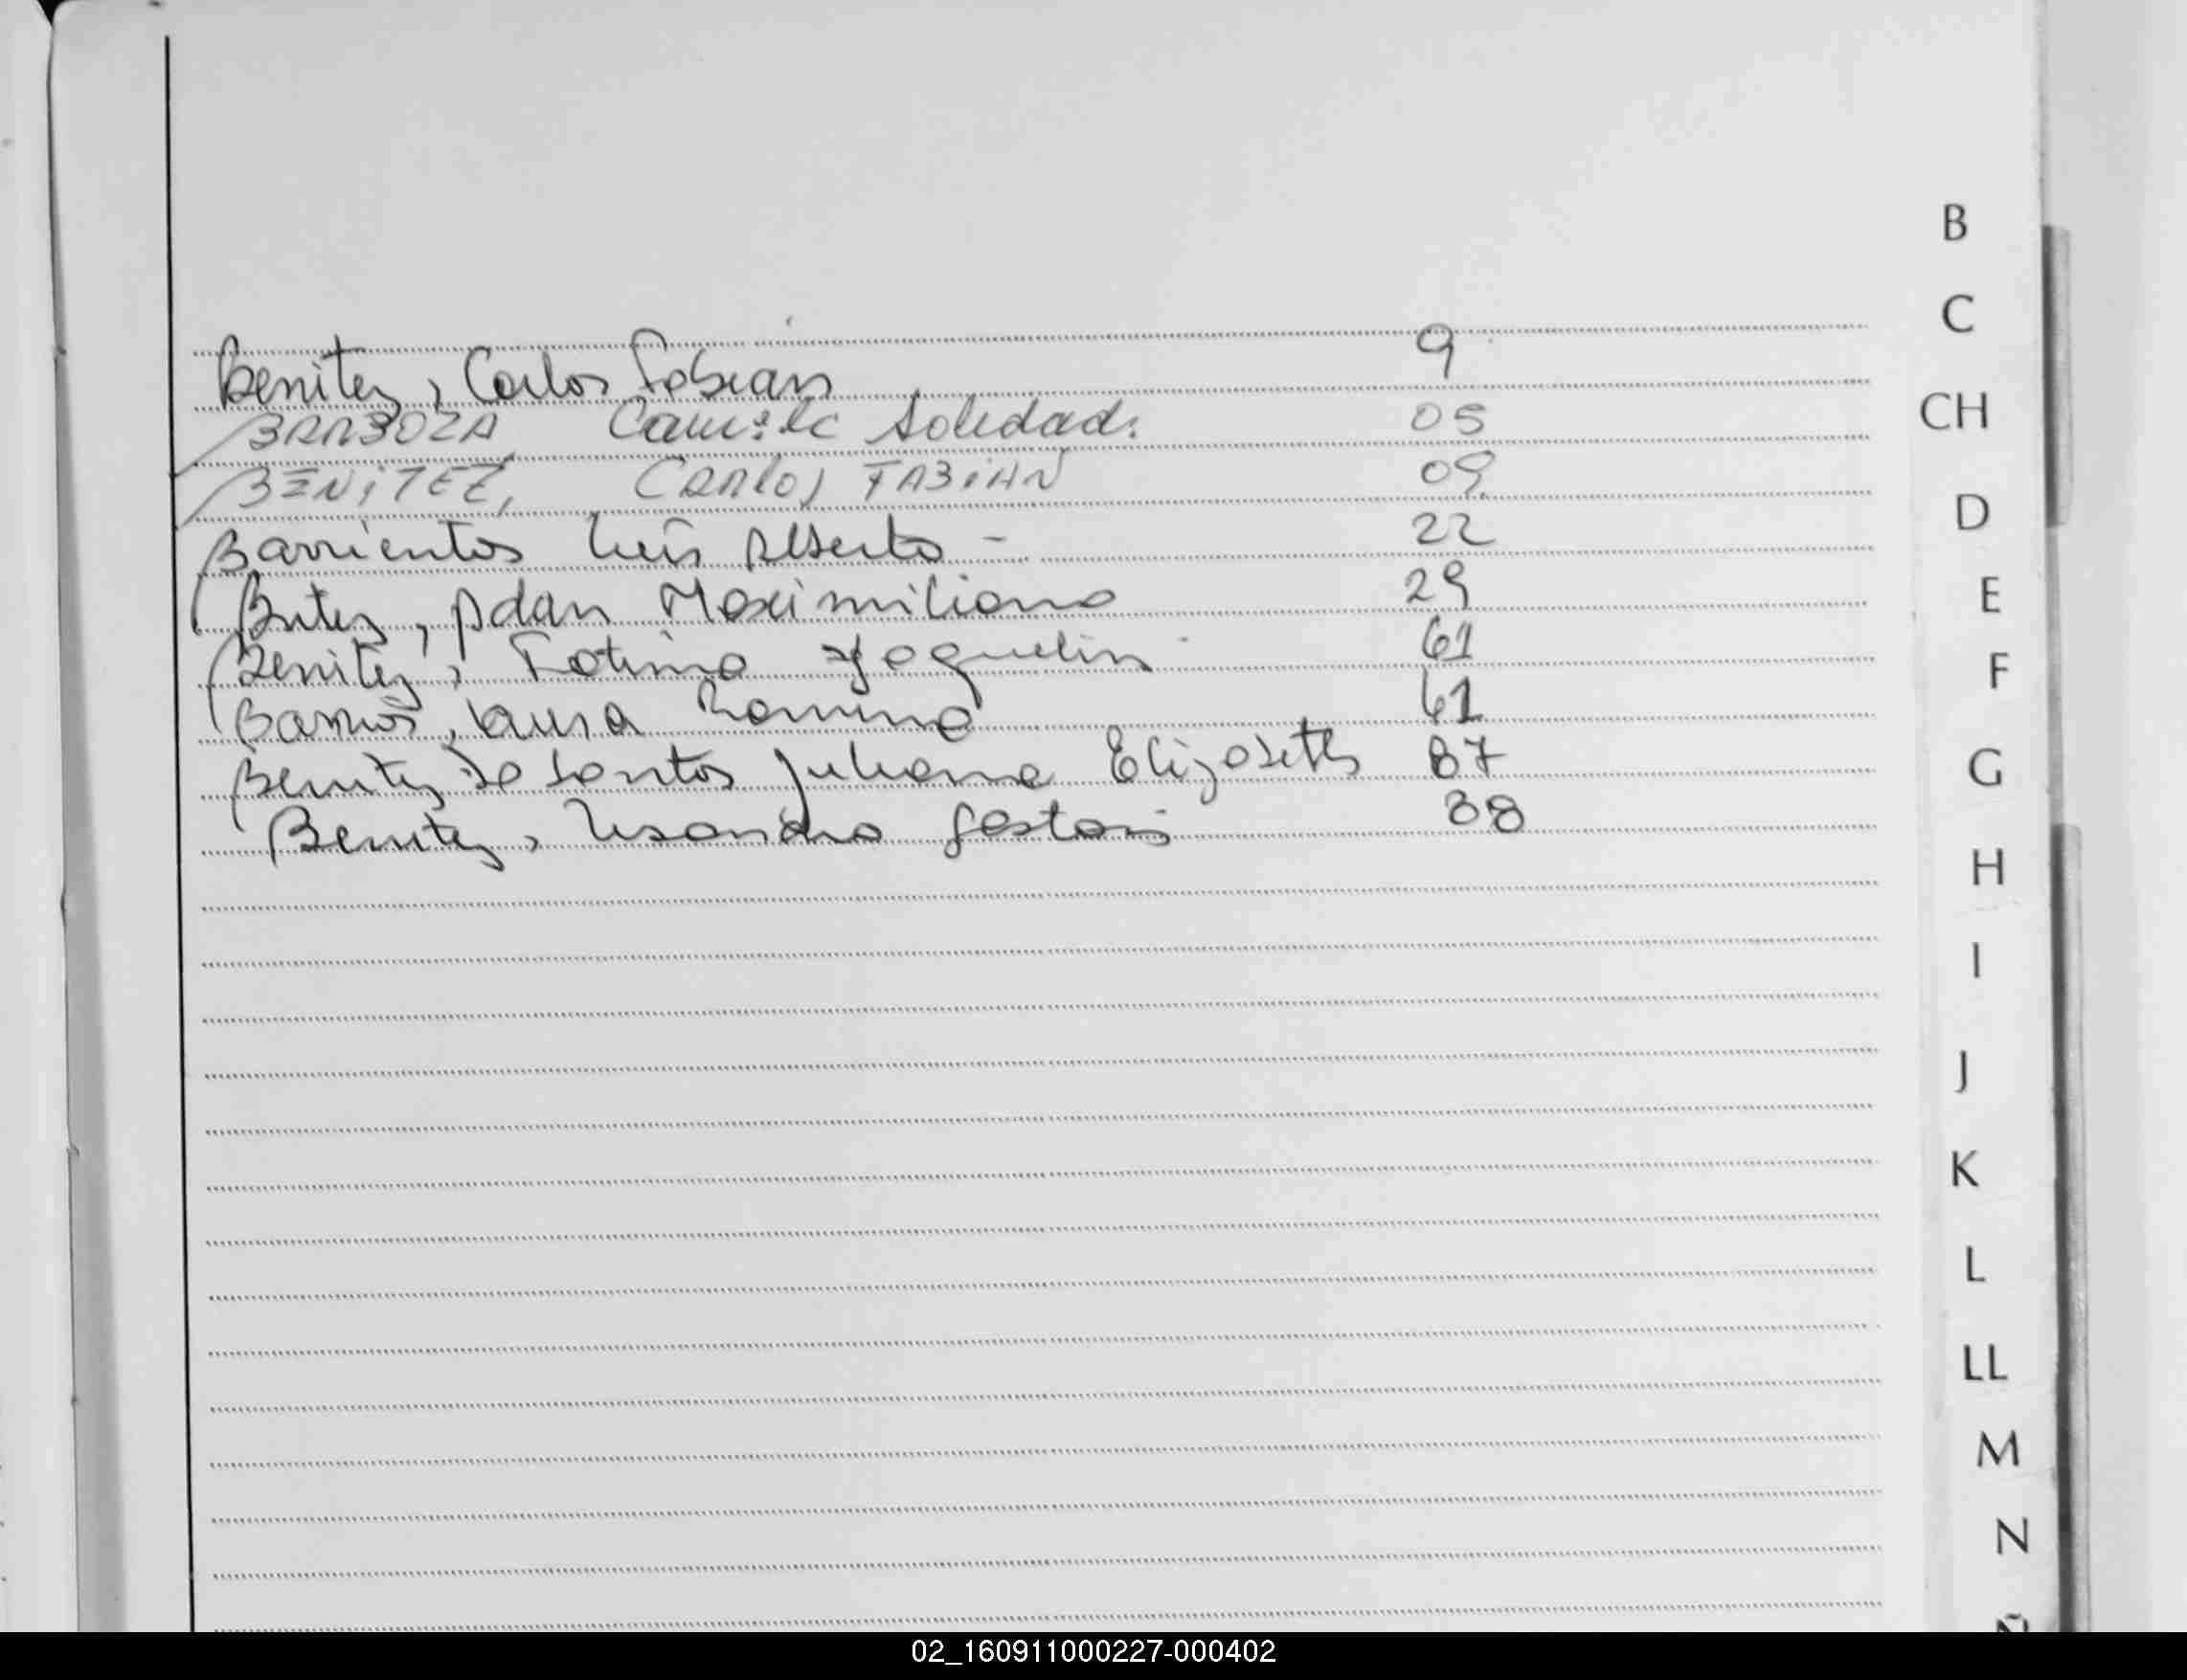 B
C
Benitez, Carlos Fabian 9
CH
BARBOZA Camila Soledad. 05
BENITEZ, CARLOS FABIAN 09
D
Barrientos Luis Alberto - 22
E
Adan Maximiliano 29
Benitez, Fatima Jaquelin 61
F
Barrios, Laura Romina 61
Benitez Do Santos Juliana Elizabeth 87
G
Benitez, Lisandro Gaston 88
H
I
J
K
L
LL
M
N
Ñ
02_160911000227-000402